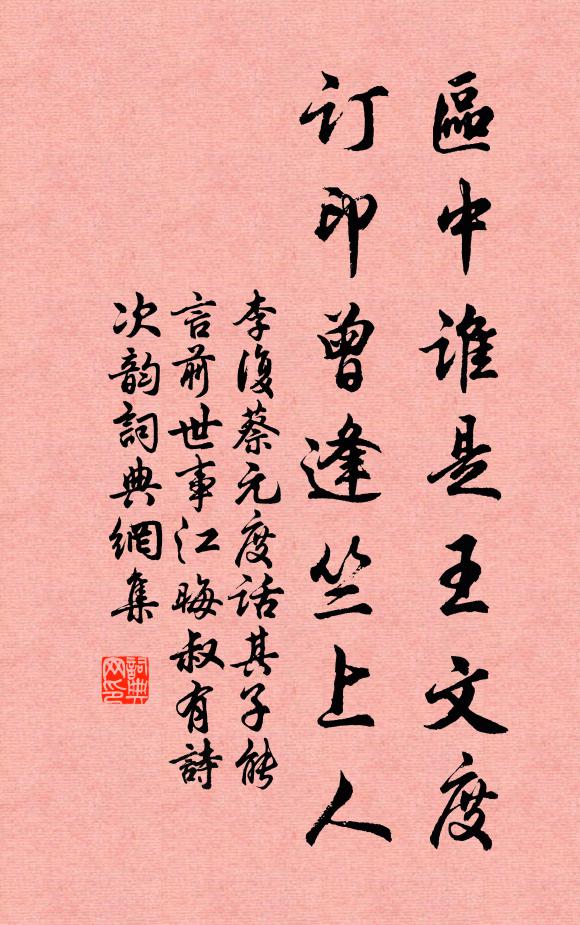 區中誰是王文度
訂印曾逢竺上人
李復蔡元度話其子能
言前世事江晦叔有詩
次韵詞典網集
詞典网印